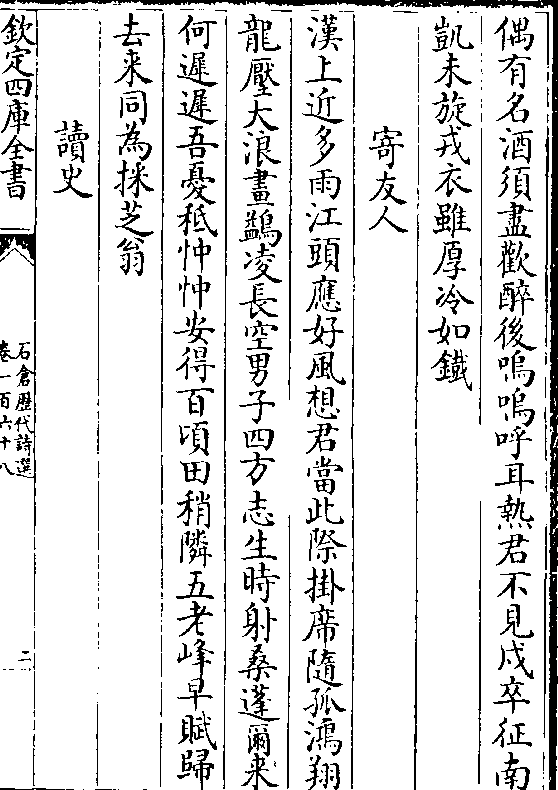 偶有名酒須盡歡醉後嗚嗚呼耳熱君不見戍卒征南
凱未旋戎衣雖厚冷如鐵
寄友人
漢上近多雨江頭應好風想君當此際掛席隨孤鴻翔
龍壓大浪畫鷁凌長空男子四方志生時射桑蓬爾来
何遲遲吾憂秪忡忡安得百頃田稍隣五老峰早賦歸
去来同為採芝翁
讀史
欽定四庫全書
石倉歴代詩選
卷一百六十八
二